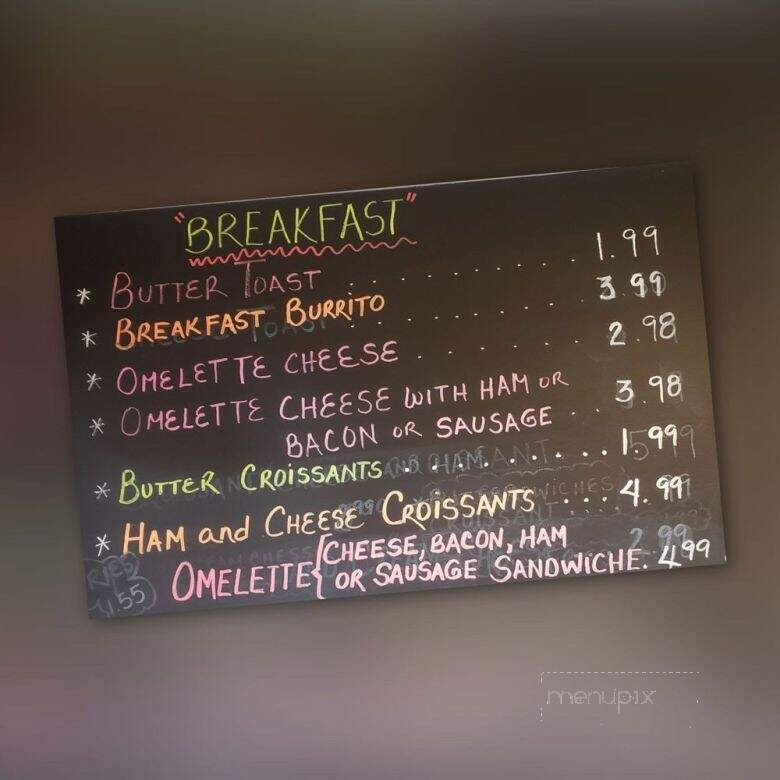 "BREAKFAST"
* BUTTER TOAST . . . . . . . . . . 1.99
* BREAKFAST BURRITO 3.99
* OMELETTE CHEESE . . . . . . . 2.98
* OMELETTE CHEESE WITH HAM OR
BACON OR SAUSAGE . . 3.98
* BUTTER CROISSANTS . . . . . . . . 1.99
* HAM and CHEESE CROISSANTS . . . . 4.99
OMELETTE { CHEESE, BACON, HAM
OR SAUSAGE SANDWICHE. 4.99
1.55
menupix